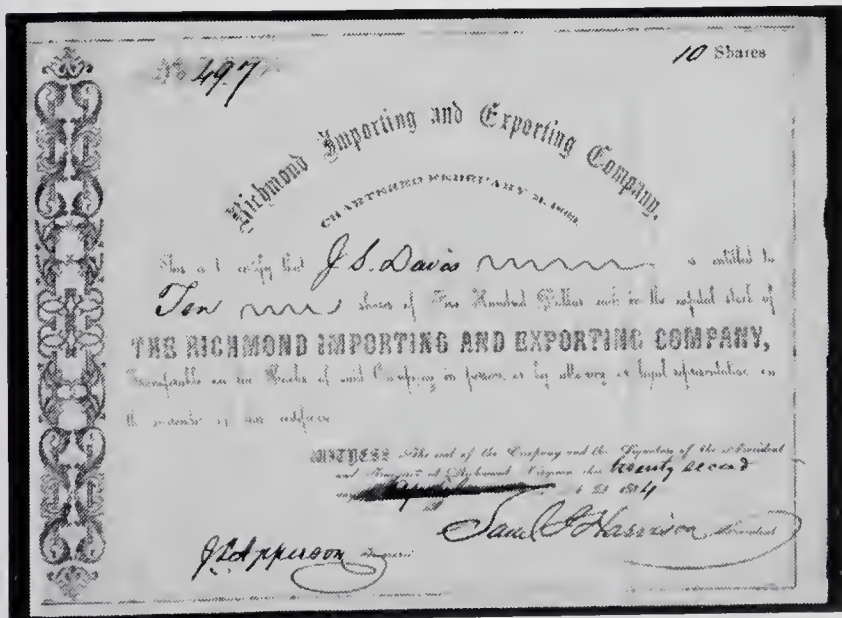 No 497
10 Shares
Richmond Importing and Exporting Company,
CHARTERED FEBRUARY
This is to certify that J. S. Davis is entitled to
Ten shares of Five Hundred Dollars each in the capital stock of
THE RICHMOND IMPORTING AND EXPORTING COMPANY,
Transferable on the Books of said Company in person, or by attorney or legal representative on
the
WITNESS the seal of the Company and the Signature of the President
and Treasurer at Richmond Virginia this twenty second
day 1864
Saml J Harrison President
Apperson Treasurer